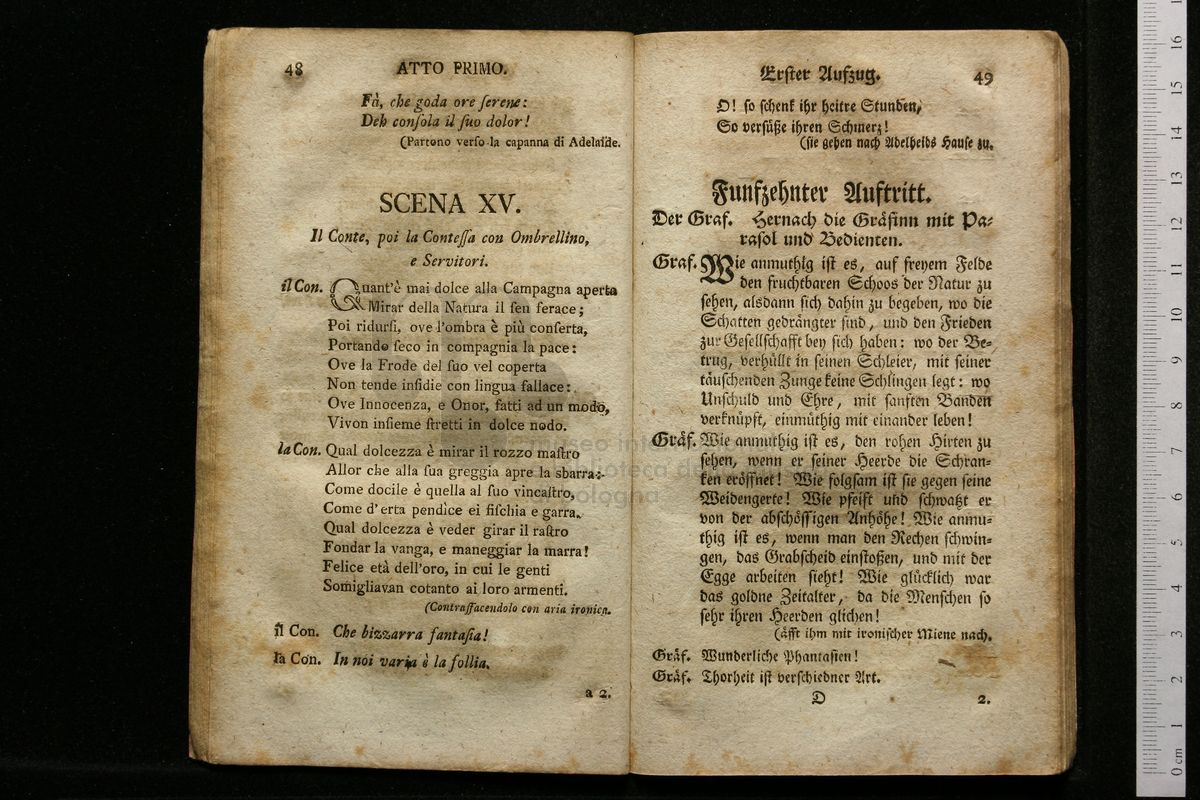 48
ATTO PRIMO.
Fà, che goda ore ſerene:
Deh conſola il ſuo dolor!
(Partono verſo la capanna di Adelaide.
SCENA XV.
Il Conte, poi la Conteſſa con Ombrellino,
e Servitori.
il Con. Quant'è mai dolce alla Campagna aperta
Mirar della Natura il ſen ferace;
Poi ridurſi, ove l'ombra è più conferta,
Portando ſeco in compagnia la pace:
Ove la Frode del ſuo vel coperta
Non tende inſidie con lingua fallace:
Ove Innocenza, e Onor, fatti ad un modo,
Vivon inſieme ſtretti in dolce nodo.
la Con. Qual dolcezza è mirar il rozzo maſtro
Allor che alla ſua greggia apre la sbarra:
Come docile è quella al ſuo vincaſtro,
Come d'erta pendice ei fiſchia e garra.
Qual dolcezza è veder girar il raſtro
Fondar la vanga, e maneggiar la marra!
Felice età dell'oro, in cui le genti
Somigliavan cotanto ai loro armenti.
(Contraffacendolo con aria ironica.
il Con. Che bizzarra fantaſia!
la Con. In noi varia è la follia.
a 2.
Erſter Aufzug.
49
O! ſo ſchenk ihr heitre Stunden,
So verſüße ihren Schmerz!
(ſie gehen nach Adelheids Hauſe zu.
Funfzehnter Auftritt.
Der Graf. Hernach die Gräfinn mit Pa-
raſol und Bedienten.
Graf. Wie anmuthig iſt es, auf freyem Felde
den fruchtbaren Schoos der Natur zu
ſehen, alsdann ſich dahin zu begeben, wo die
Schatten gedrängter ſind, und den Frieden
zur Geſellſchafft bey ſich haben: wo der Be-
trug, verhüllt in ſeinen Schleier, mit ſeiner
täuſchenden Zunge keine Schlingen legt: wo
Unſchuld und Ehre, mit ſanften Banden
verknüpft, einmüthig mit einander leben!
Gräf. Wie anmuthig iſt es, den rohen Hirten zu
ſehen, wenn er ſeiner Heerde die Schran-
ken eröffnet! Wie folgſam iſt ſie gegen ſeine
Weidengerte! Wie pfeift und ſchwatzt er
von der abſchöſſigen Anhöhe! Wie anmu-
thig iſt es, wenn man den Rechen ſchwin-
gen, das Grabſcheid einſtoßen, und mit der
Egge arbeiten ſieht! Wie glücklich war
das goldne Zeitalter, da die Menſchen ſo
ſehr ihren Heerden glichen!
(äfft ihm mit ironiſcher Miene nach.
Gräf. Wunderliche Phantaſien!
Gräf. Thorheit iſt verſchiedner Art.
D
2.